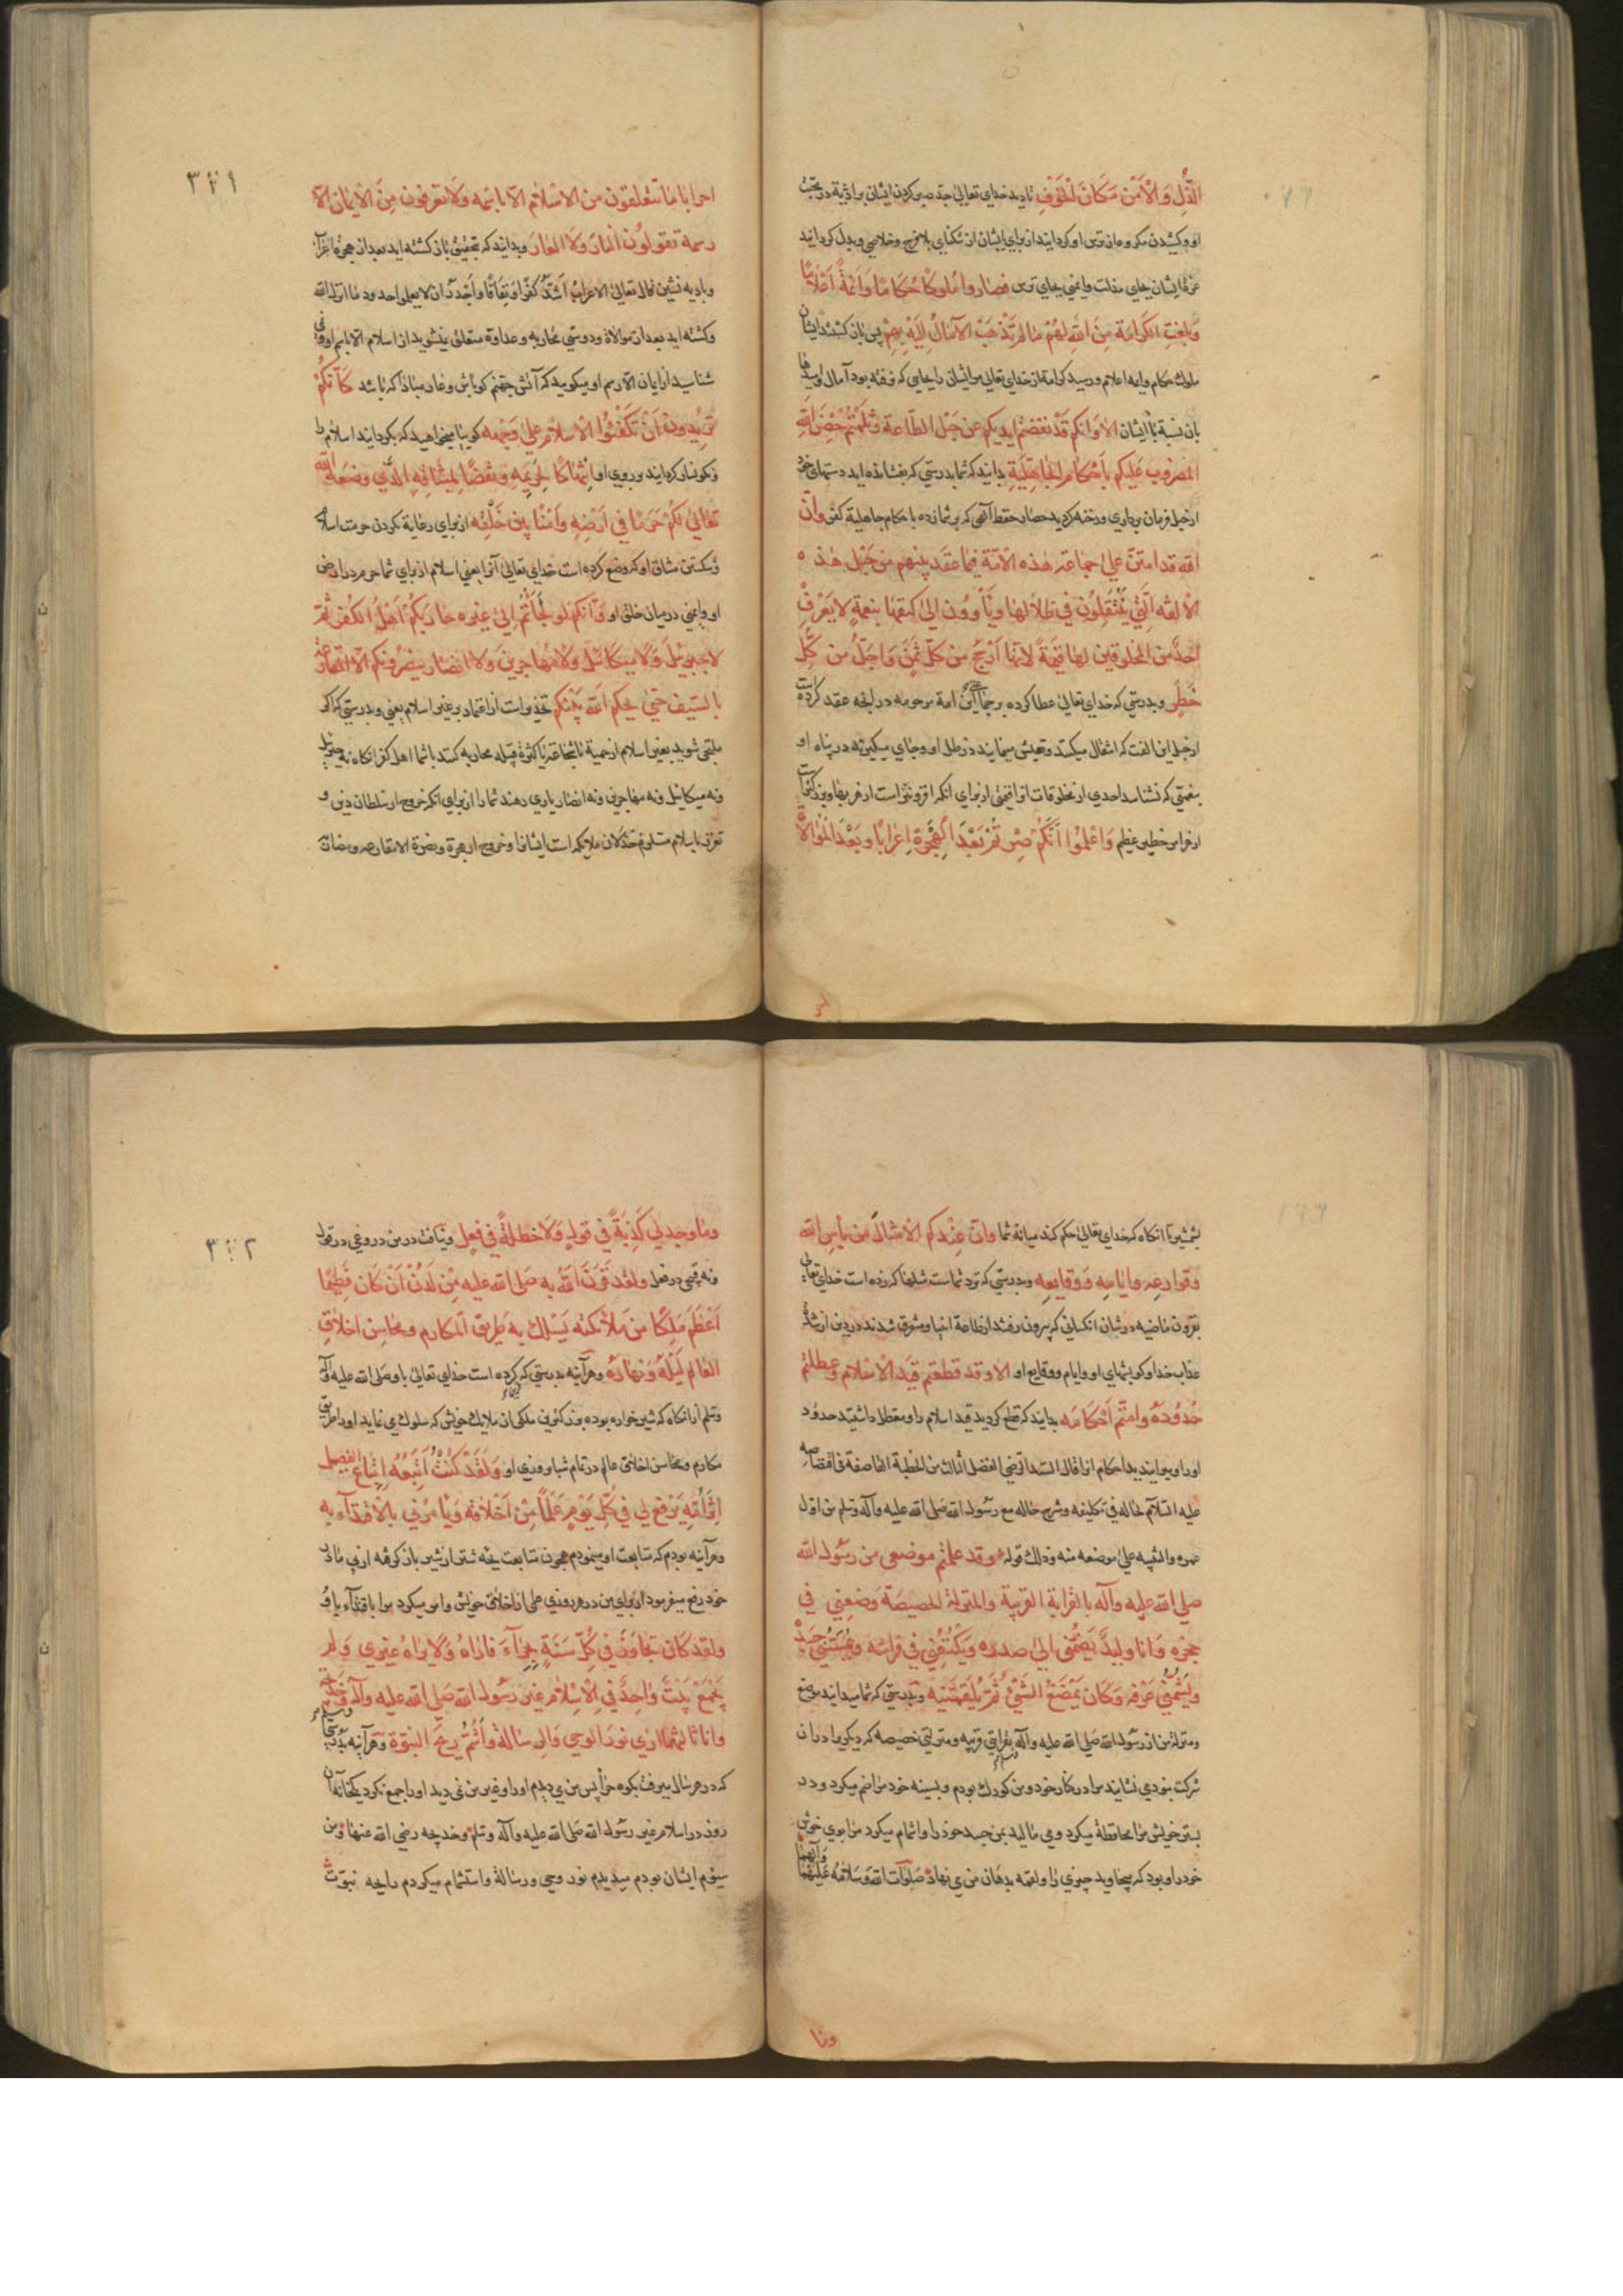 الذُّلِ وَالْاَمْنَ مَكَانَ الْخَوْفِ تا دید خدای تعالی جد صبر کردن ایشان بر اذیة در محبت
او و کشیدن مکروه از ترس او کردانید از برای ایشان از تنکنای بلا فرج و خلاصی و بدل کردانید
عزة ایشان بجای مذلت و ایمنی بجای ترس فصاروا مُلوكًا حُكامًا وَاَئمةً اَعْلامًا
وَبلغتِ الكرامَة مِنَ اللهِ لهُمْ مَا لم تَذْهَبْ الآمَالُ اِلَيْهِ بِهِمْ پس بازکشتند ایشان
ملوک حکام و ایمه اعلام و رسید کرامة از خدای تعالی مر ایشان را بجایی که نرفته بود آمال و امیدها
بآن نسبة با ایشان الا وَاَنكم قَدْ نفضتم ايديكم عن حَبْل الطاعة وثلمتُم حِصْنَ اللهِ
المضروب عَليكم بأحْكام الجاهِليةِ بدانید که شما بدرستی که بفشانده اید دستهای خود
از حبل فرمان برداری و رخنه کردید حصار حفظ آلهی که بر شما زده باحکام جاهلیة کفر وانّ
الله قد امتنّ علىٰ جماعة هٰذه الامّة فيما عقد بينهم من حَبْل هٰذه
الاُلفه الّتي يَنْتَقِلوُن في ظلالها ويَأوُون الىٰ كنفها بنعمةٍ لا يَعْرِفُ
احدٌ من المخلوقين لها قيمَةً لانّها اَرْجَحُ من كلّ ثمَنٍ وَاجَلُّ من كُلِّ
خَطَرٍ و بدرستی که خدای تعالی عطا کرده بر جماعة این امة مرحومه در آنچه عقد کرده است
از حبل این الفت که انتقال میکنند و تعیش مینمایند در ظل او و جای میکیرند در پناه او
بنعمتی که نشناسد احدی از مخلوقات او را قیمتی از برای آنکه افزونتر است از هر بها و بزرکتر است
از هر امر خطیر عظیم وَاعْلموُا اَنَّكُمْ صِرْتم بَعْدَ الهِجْرَةِ اِعْرابًا وبَعْدَ المُوالاة
۳۴۱
احزابًا مَا تتعلقون من الاسْلام الّا باسمه وَلَا تعرفون مِنَ الْايمان الّا
رسمه تقولوُن النارَ وَلا العارَ و بدانید که بتحقیق بازکشته اید بعد از هجرة اعراب
و بادیه نشین قال تعالیٰ الاعرابُ اَشدّ كفرًا ونِفاقًا واَجْدرُ ان لا يعلموا حدود ما انزل الله
و کشته اید بعد از موالاة و دوستی محاربه و عداوة متعلق نمیشوید از اسلام الا باسم او و نمی
شناسید از ایمان الا رسم او میکویید که آتش جهنم کو باش و عار مبادا که باشد كَاَنّكُمْ
تُرِيدُونَ اَنْ تكْفَئوُا الاِسْلامَ علىٰ وَجْهه کویا میخواهید که بکردانید اسلام را
و نکونسار کردانید بر روی او اِنْتِهَاكًا لِحَرِيمِهِ ونَقْضًا لِمِيْثَاقِهِ الّذي وضعَهُ اللهُ
تعَالىٰ لكُمْ حَرَمًا في اَرْضِهِ وَاَمْنًا بينَ خَلْقِه از برای رعایة نکردن حرمت اسلام
و شکستن میثاق او که وضع کرده است خدای تعالی آنرا یعنی اسلام از برای شما حرم در ارض
او و ایمنی در میان خلق او وَاَنكم لو لَجَأْتُم اِلىٰ غيره حَارَبَكُمْ اَهْلُ الكُفر ثُمّ
لا جبريل وَلا ميكائيل وَلا مُهاجرين وَلا انصار ينصُرونكم الّا المقارعة
بالسّيف حتىٰ يحكم الله بَيْنكم تحذیر است از اعتماد بر غیر اسلام یعنی و بدرستی که اکر
ملتجی شوید بغیر اسلام از حمیة یا شجاعة یا کثرة قبیله محاربه کنند با شما اهل کفر آنکاه نه جبریل
و نه میکائیل و نه مهاجرین و نه انصار یاری دهند شما را از برای آنکه خروج از سلطان دین و
بشمشیر تا آنکاه که خدای تعالی حکم کند میانه شما وانّ عِنْدكم الامثالَ من بأسِ الله
وقوارعِهِ وايّامِهِ وَوقايعِهِ و بدرستی که نزد شماست مثلها که زده است خدای تعالی
بقرون ماضیه در شان آنکسانی که بیرون رفتند از طاعة انبیا و متفرق شدند در دین از شدة
عذاب خدا و کوبشهای او و ایام و وقایع او الا وقد قطعتم قَيدَ الاسْلام وعطلتم
حُدُودَهُ وامتّم اَحْكامَه بدانید که قطع کردید قید اسلام را و معطل داشتید حدود
او را و میرانیدید احکام او را قال السّيد الرضي الفصل الثالث من الخطبة القاصعة في اقتصاصه
عليه السّلام لحاله في تكليفه وشرح حاله مع رسُول الله صلى الله عليه وآله وسلم من اول
عمره والتنبيه علىٰ موضعه منه وذلك قوله وقد علمتم موضعي من رسُول الله
صلى الله عليه وآله بالقرابة القريبة والمنزلة الخصيصة وَضعني في
حجره وَانا وليدٌ يَضُمُّني الىٰ صدره وَيَكْنُفُني في فراشه ويُمِسُّني جسَدَهُ
ويُشِمُّني عَرْفه وَكان يَمْضَغُ الشئ ثمّ يُلَقِّمُنيه و بدرستی که شما میدانید موضع
و منزلة من از رسول الله صلی الله علیه وآله بقرابتی قریبه و منزلتی خصیصه که دیکری را در آن
شرکت نبودی نشانید مرا در کنار خود و من کودک بودم و بسینه خود مرا ضم میکرد و در
بستر خویش مرا محافظة میکرد و می مالید بمن جسد خود را و اشمام میکرد مرا بوی خوش
خود را و بود که میخاوید چیزی را و لقمه بدهان من می نهاد صلوات الله وسلامه عليهما وآلهما
وما
۳۴۲
وما وجد لي كَذِبَةً في قولٍ وَلا خطلةً في فعلٍ و نیافت در من دروغی در قول
و نه قبحی در فعل ولقد قرَنَ اللهُ به صَلى الله عليه مِنْ لَدُنْ اَنْ كان فَطِيمًا
اَعْظمَ مَلكًا من مَلائكته يَسْلك به طَرِيق المكارم ومحاسِن اخلاقِ
العالم لَيْلَهُ وَنهارَهُ و هرآینه بدرستی که کرده است خدای تعالی باو صلی الله علیه وآله
وسلم از آنکاه که شیر خواره بوده بزرکترین ملکی از ملایک خویش که سلوک می نماید او را طریق
مکارم و محاسن اخلاق عالم در تمام شبا و روزی او وَلقَدْ كُنْتُ اَتَّبعُهُ اِتّباعَ الفصيل
اِثْرَ اُمّهِ يَرْفع لي في كُلّ يَوْمٍ عَلَمًا مِنْ اَخْلاقه وَيَأمُرُني بالاقتداء به
و هرآینه بودم که متابعت او مینمودم همچون متابعت بچه شتر از شیر بازکرفته از پی مادر
خود رفع میفرمود از برای من در هر روزی علمی از اخلاق خویش و امر میکرد مرا باقتداء باو
ولقد كان يجاوِرُ في كلّ سَنَةٍ بحِرَآءَ فاَراهُ وَلا يراهُ غيري ولم
يَجْمَعْ بَيْتٌ وَاحِدٌ في الاِسْلام غير رسُول الله صلى الله عليه وآله وسلم وخديجة
وانا ثالثهما اري نورَ الوحي والرسالة وأشُمُّ ريحَ النبُوّة و هرآینه بدرستی
که در هر سال میرفت بکوه حرا پس من می دیدم او را و غیر من نمی دید او را و جمع نکرد یکخانه آن
روز در اسلام غیر رسول الله صلی الله علیه وآله وسلم و خدیجه رضی الله عنها و من
سیوم ایشان بودم میدیدم نور وحی و رسالة و استشمام میکردم رایحه نبوت